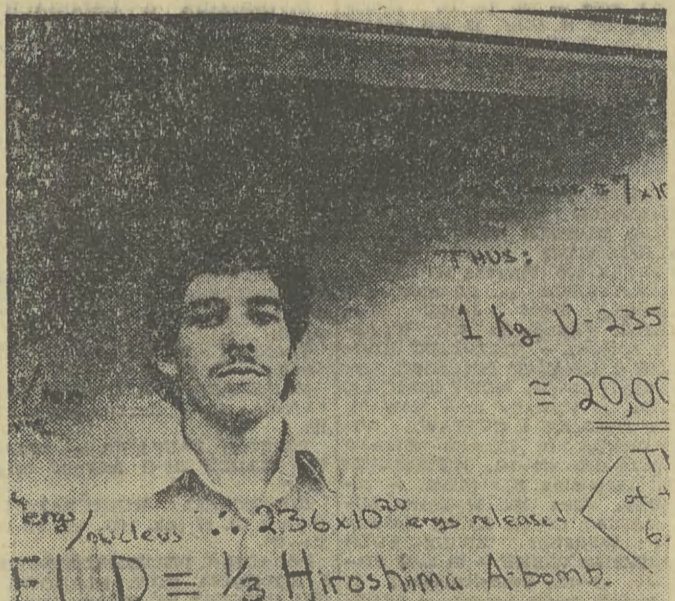 ≅ 7x10
THUS:
1 Kg U-235
≅ 20,00
ergs/nucleus ∴ 236x10²⁰ ergs released.
of
6.
≡ 1/3 Hiroshima A-bomb.